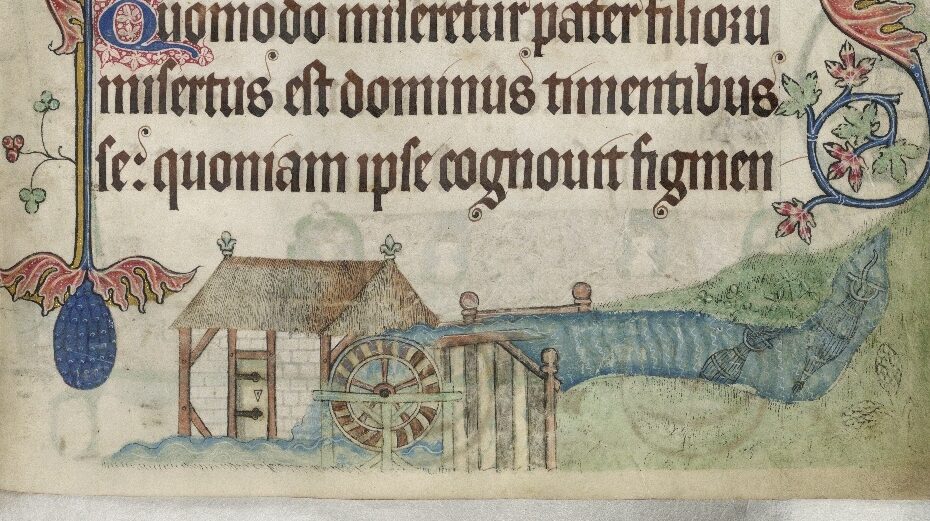 Quomodo miseretur pater filioru
misertus est dominus timentibus
se: quoniam ipse cognouit figmen